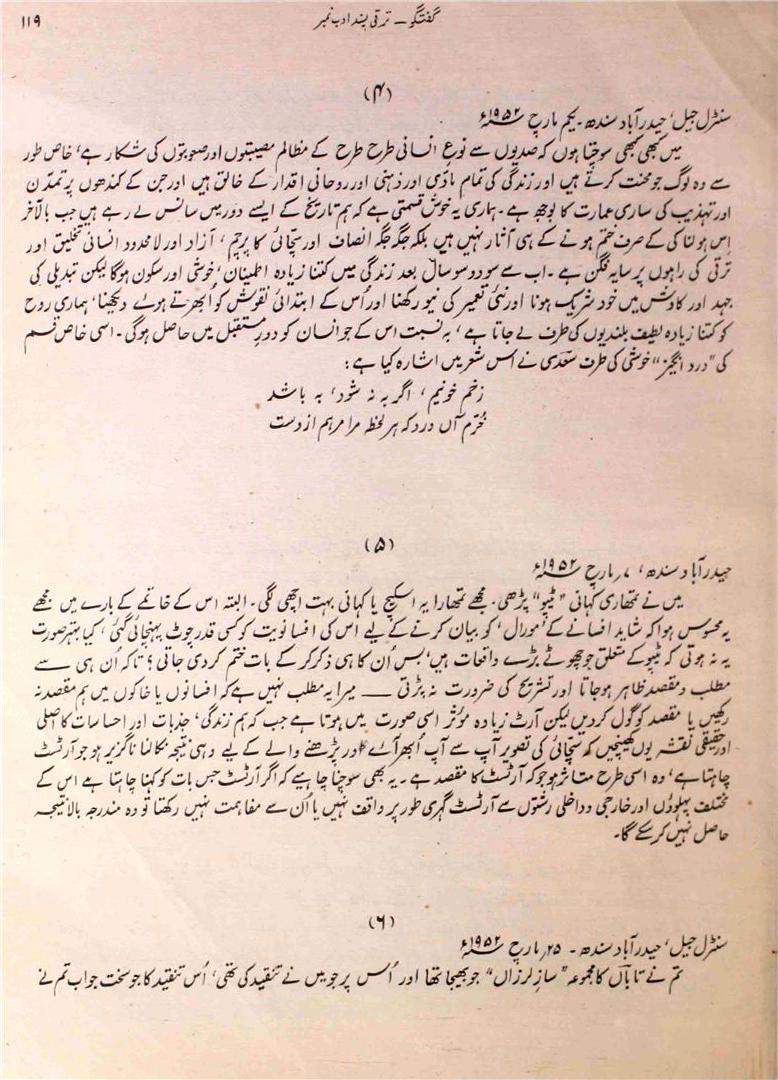 گفتگو ـ ترقی پسند ادب نمبر
۱۱۹
(۴)
سنٹرل جیل، حیدرآباد سندھ۔ یکم مارچ ۱۹۵۲ء
میں کبھی کبھی سوچتا ہوں کہ صدیوں سے نوع انسانی طرح طرح کے مظالم مصیبتوں اور صعوبتوں کی شکار ہے، خاص طور
سے وہ لوگ جو محنت کرتے ہیں اور زندگی کی تمام مادّی اور ذہنی اور روحانی اقدار کے خالق ہیں اور جن کے کندھوں پر تمدّن
اور تہذیب کی ساری عمارت کا بوجھ ہے۔ ہماری یہ خوش قسمتی ہے کہ ہم تاریخ کے ایسے دور میں سانس لے رہے ہیں جب بالآخر
اس ہولناکی کے صرف ختم ہونے کے ہی آثار نہیں ہیں بلکہ جگہ جگہ انصاف اور سچائی کا پرچم، آزاد اور لامحدود انسانی تخلیق اور
ترقی کی راہوں پر سایہ فگن ہے۔ اب سے سو دو سو سال بعد زندگی میں کتنا زیادہ اطمینان، خوشی اور سکون ہوگا لیکن تبدیلی کی
جہد اور کاوش میں خود شریک ہونا اور نئی تعمیر کی نیو رکھنا اور اُس کے ابتدائی نقوش کو اُبھرتے ہوئے دیکھنا، ہماری روح
کو کتنا زیادہ لطیف بلندیوں کی طرف لے جاتا ہے، بہ نسبت اس کے جو انسان کو دورِ مستقبل میں حاصل ہوگی۔ اسی خاص قسم
کی "درد انگیز" خوشی کی طرف سعدی نے اس شعر میں اشارہ کیا ہے:
زخم خونیم، اگر بہ نہ شود، بہ باشد
خُرّم آں درد کہ ہر لحظہ مرا مرہم از دست
(۵)
حیدرآباد سندھ، ۷، مارچ ۱۹۵۲ء
میں نے تمھاری کہانی "ٹیپو" پڑھی۔ مجھے تمھارا یہ اسکیچ یا کہانی بہت اچھی لگی۔ البتہ اس کے خاتمے کے بارے میں مجھے
یہ محسوس ہوا کہ شاید افسانے کے 'مورال' کو بیان کرنے کے لیے اس کی افسانویت کو کسی قدر چوٹ پہنچائی گئی، کیا بہتر صورت
یہ نہ ہوتی کہ ٹیپو کے متعلق جو چھوٹے بڑے واقعات ہیں، بس اُن کا ہی ذکر کر کے بات ختم کر دی جاتی؟ تاکہ اُن ہی سے
مطلب و مقصد ظاہر ہو جاتا اور تشریح کی ضرورت نہ پڑتی — میرا یہ مطلب نہیں ہے کہ افسانوں یا خاکوں میں ہم مقصد نہ
رکھیں یا مقصد کو گول کر دیں لیکن آرٹ زیادہ مؤثر اسی صورت میں ہوتا ہے جب کہ ہم زندگی، جذبات اور احساسات کا اصلی
اور حقیقی نقشہ یوں کھینچیں کہ سچائی کی تصویر آپ سے آپ اُبھر آئے اور پڑھنے والے کے لیے وہی نتیجہ نکالنا ناگزیر ہو جو آرٹسٹ
چاہتا ہے، وہ اسی طرح متاثر ہو جو کہ آرٹسٹ کا مقصد ہے۔ یہ بھی سوچنا چاہیے کہ اگر آرٹسٹ جس بات کو کہنا چاہتا ہے اس کے
مختلف پہلوؤں اور خارجی و داخلی رشتوں سے آرٹسٹ گہری طور پر واقف نہیں یا اُن سے مفاہمت نہیں رکھتا تو وہ مندرجہ بالا نتیجہ
حاصل نہیں کر سکے گا۔
(۶)
سنٹرل جیل، حیدرآباد سندھ۔ ۲۵، مارچ ۱۹۵۲ء
تم نے تاباں کا مجموعہ "سازِ لرزاں" جو بھیجا تھا اور اُس پر جو میں نے تنقید کی تھی، اُس تنقید کا جو سخت جواب تم نے